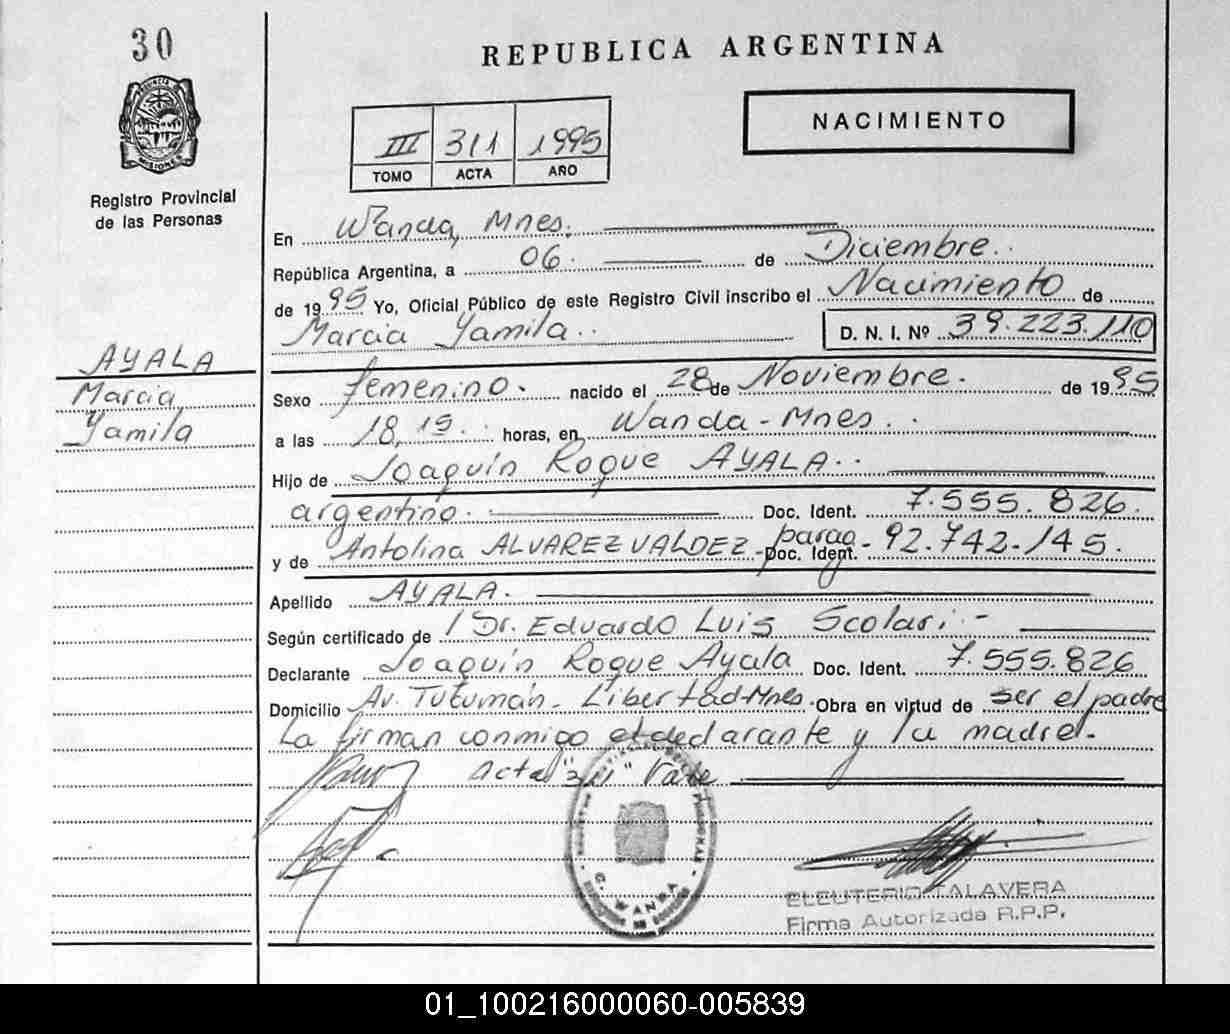 30
REPUBLICA ARGENTINA
PROVINCIA DE MISIONES
Registro Provincial
de las Personas
III 311 1995
TOMO ACTA AÑO
NACIMIENTO
En Wanda, Mnes.
República Argentina, a 06. de Diciembre.
de 1995 Yo, Oficial Público de este Registro Civil inscribo el Nacimiento de
Marcia Yamila. D. N. I. Nº 39.223.110
AYALA
Marcia
Yamila
Sexo femenino. nacido el 28 de Noviembre. de 1995
a las 18,15. horas, en Wanda-Mnes.
Hijo de Joaquín Roque AYALA.
argentino. Doc. Ident. 7.555.826.
y de Antolina ALVAREZ VALDEZ- parag. Doc. Ident. 92.742.145.
Apellido AYALA.
Según certificado de / Dr. Eduardo Luis Scolari-
Declarante Joaquín Roque Ayala Doc. Ident. 7.555.826
Domicilio Av. Tutumán- Libertad-Mnes. Obra en virtud de ser el padre
La firman conmigo el declarante y la madre.
Acta "311" Vale
WANDA
ELEUTERIO TALAVERA
Firma Autorizada R.P.P.
01_100216000060-005839